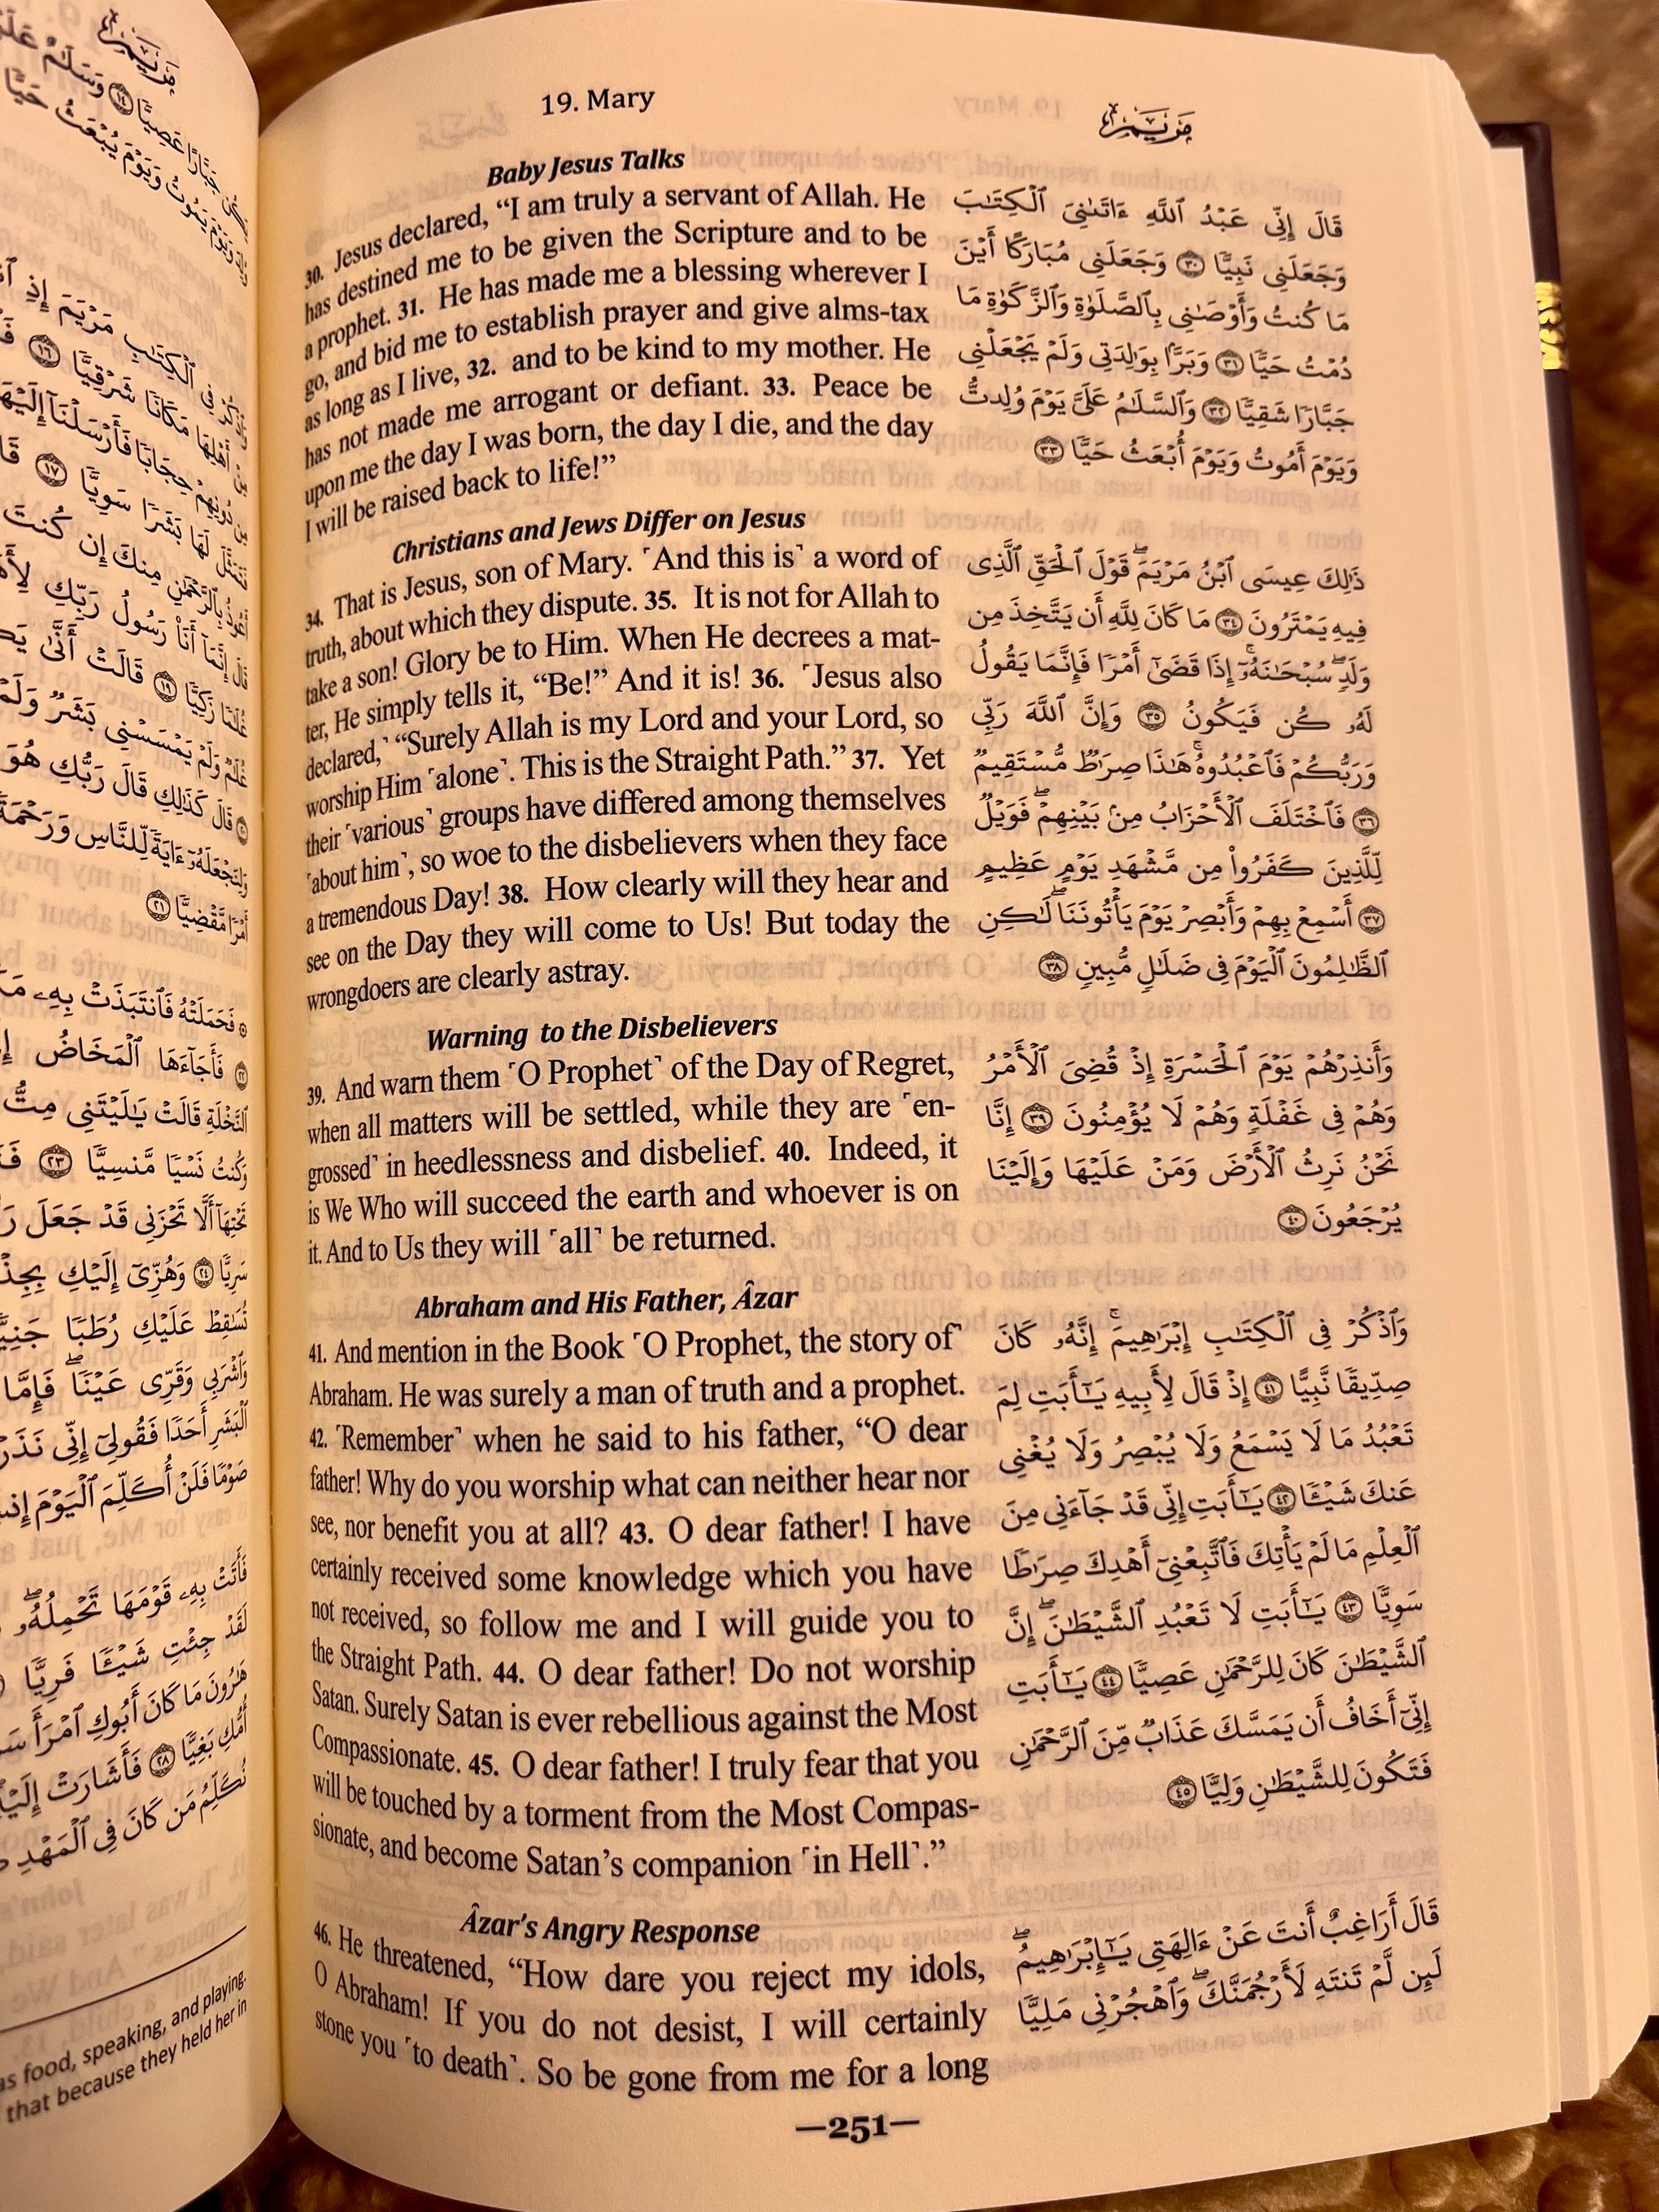 مَرْيَم
وَسَلَٰمٌ
جَبَّارًا عَصِيًّا ١٤
وَيَوْمَ يَمُوتُ وَيَوْمَ يُبْعَثُ حَيًّا
ٱلْكِتَٰبِ مَرْيَمَ إِذِ
أَهْلِهَا مَكَانًا شَرْقِيًّا ١٦
دُونِهِمْ حِجَابًا فَأَرْسَلْنَآ إِلَيْهَا
لَهَا بَشَرًا سَوِيًّا ١٧
بِٱلرَّحْمَٰنِ مِنكَ إِن كُنتَ
إِنَّمَآ أَنَا۠ رَسُولُ رَبِّكِ
غُلَٰمًا زَكِيًّا ١٩ قَالَتْ أَنَّىٰ
غُلَٰمٌ وَلَمْ يَمْسَسْنِى بَشَرٌ وَلَمْ
قَالَ كَذَٰلِكِ قَالَ رَبُّكِ هُوَ
وَلِنَجْعَلَهُۥٓ ءَايَةً لِّلنَّاسِ وَرَحْمَةً
أَمْرًا مَّقْضِيًّا ٢١
فَحَمَلَتْهُ فَٱنتَبَذَتْ بِهِۦ
٢٢ فَأَجَآءَهَا ٱلْمَخَاضُ
ٱلنَّخْلَةِ قَالَتْ يَٰلَيْتَنِى مِتُّ
وَكُنتُ نَسْيًا مَّنسِيًّا ٢٣
تَحْتِهَآ أَلَّا تَحْزَنِى قَدْ جَعَلَ
سَرِيًّا ٢٤ وَهُزِّىٓ إِلَيْكِ
تُسَٰقِطْ عَلَيْكِ رُطَبًا جَنِيًّا
وَٱشْرَبِى وَقَرِّى عَيْنًا ۖ فَإِمَّا
ٱلْبَشَرِ أَحَدًا فَقُولِىٓ إِنِّى نَذَرْتُ
صَوْمًا فَلَنْ أُكَلِّمَ ٱلْيَوْمَ
فَأَتَتْ بِهِۦ قَوْمَهَا تَحْمِلُهُۥ ۖ
لَقَدْ جِئْتِ شَيْـًٔا فَرِيًّا
هَٰرُونَ مَا كَانَ أَبُوكِ ٱمْرَأَ
أُمُّكِ بَغِيًّا ٢٨ فَأَشَارَتْ
نُكَلِّمُ مَن كَانَ فِى ٱلْمَهْدِ
food, speaking, and playing.
that because they held her in
19. Mary
مَرْيَم
Baby Jesus Talks
30. Jesus declared, “I am truly a servant of Allah. He
has destined me to be given the Scripture and to be
a prophet. 31. He has made me a blessing wherever I
go, and bid me to establish prayer and give alms-tax
as long as I live, 32. and to be kind to my mother. He
has not made me arrogant or defiant. 33. Peace be
upon me the day I was born, the day I die, and the day
I will be raised back to life!”
قَالَ إِنِّى عَبْدُ ٱللَّهِ ءَاتَىٰنِىَ ٱلْكِتَٰبَ
وَجَعَلَنِى نَبِيًّا ٣٠ وَجَعَلَنِى مُبَارَكًا أَيْنَ
مَا كُنتُ وَأَوْصَٰنِى بِٱلصَّلَوٰةِ وَٱلزَّكَوٰةِ مَا
دُمْتُ حَيًّا ٣١ وَبَرًّۢا بِوَٰلِدَتِى وَلَمْ يَجْعَلْنِى
جَبَّارًا شَقِيًّا ٣٢ وَٱلسَّلَٰمُ عَلَىَّ يَوْمَ وُلِدتُّ
وَيَوْمَ أَمُوتُ وَيَوْمَ أُبْعَثُ حَيًّا ٣٣
Christians and Jews Differ on Jesus
34. That is Jesus, son of Mary. ˹And this is˺ a word of
truth, about which they dispute. 35. It is not for Allah to
take a son! Glory be to Him. When He decrees a mat-
ter, He simply tells it, “Be!” And it is! 36. ˹Jesus also
declared,˺ “Surely Allah is my Lord and your Lord, so
worship Him ˹alone˺. This is the Straight Path.” 37. Yet
their ˹various˺ groups have differed among themselves
˹about him˺, so woe to the disbelievers when they face
a tremendous Day! 38. How clearly will they hear and
see on the Day they will come to Us! But today the
wrongdoers are clearly astray.
ذَٰلِكَ عِيسَى ٱبْنُ مَرْيَمَ ۚ قَوْلَ ٱلْحَقِّ ٱلَّذِى
فِيهِ يَمْتَرُونَ ٣٤ مَا كَانَ لِلَّهِ أَن يَتَّخِذَ مِن
وَلَدٍ ۖ سُبْحَٰنَهُۥٓ ۚ إِذَا قَضَىٰٓ أَمْرًا فَإِنَّمَا يَقُولُ
لَهُۥ كُن فَيَكُونُ ٣٥ وَإِنَّ ٱللَّهَ رَبِّى
وَرَبُّكُمْ فَٱعْبُدُوهُ ۚ هَٰذَا صِرَٰطٌ مُّسْتَقِيمٌ
٣٦ فَٱخْتَلَفَ ٱلْأَحْزَابُ مِنۢ بَيْنِهِمْ ۖ فَوَيْلٌ
لِّلَّذِينَ كَفَرُوا۟ مِن مَّشْهَدِ يَوْمٍ عَظِيمٍ
٣٧ أَسْمِعْ بِهِمْ وَأَبْصِرْ يَوْمَ يَأْتُونَنَا ۖ لَٰكِنِ
ٱلظَّٰلِمُونَ ٱلْيَوْمَ فِى ضَلَٰلٍ مُّبِينٍ ٣٨
Warning to the Disbelievers
39. And warn them ˹O Prophet˺ of the Day of Regret,
when all matters will be settled, while they are ˹en-
grossed˺ in heedlessness and disbelief. 40. Indeed, it
is We Who will succeed the earth and whoever is on
it. And to Us they will ˹all˺ be returned.
وَأَنذِرْهُمْ يَوْمَ ٱلْحَسْرَةِ إِذْ قُضِىَ ٱلْأَمْرُ
وَهُمْ فِى غَفْلَةٍ وَهُمْ لَا يُؤْمِنُونَ ٣٩ إِنَّا
نَحْنُ نَرِثُ ٱلْأَرْضَ وَمَنْ عَلَيْهَا وَإِلَيْنَا
يُرْجَعُونَ ٤٠
Abraham and His Father, Âzar
41. And mention in the Book ˹O Prophet, the story of˺
Abraham. He was surely a man of truth and a prophet.
42. ˹Remember˺ when he said to his father, “O dear
father! Why do you worship what can neither hear nor
see, nor benefit you at all? 43. O dear father! I have
certainly received some knowledge which you have
not received, so follow me and I will guide you to
the Straight Path. 44. O dear father! Do not worship
Satan. Surely Satan is ever rebellious against the Most
Compassionate. 45. O dear father! I truly fear that you
will be touched by a torment from the Most Compas-
sionate, and become Satan’s companion ˹in Hell˺.”
وَٱذْكُرْ فِى ٱلْكِتَٰبِ إِبْرَٰهِيمَ ۚ إِنَّهُۥ كَانَ
صِدِّيقًا نَّبِيًّا ٤١ إِذْ قَالَ لِأَبِيهِ يَٰٓأَبَتِ لِمَ
تَعْبُدُ مَا لَا يَسْمَعُ وَلَا يُبْصِرُ وَلَا يُغْنِى
عَنكَ شَيْـًٔا ٤٢ يَٰٓأَبَتِ إِنِّى قَدْ جَآءَنِى مِنَ
ٱلْعِلْمِ مَا لَمْ يَأْتِكَ فَٱتَّبِعْنِىٓ أَهْدِكَ صِرَٰطًا
سَوِيًّا ٤٣ يَٰٓأَبَتِ لَا تَعْبُدِ ٱلشَّيْطَٰنَ ۖ إِنَّ
ٱلشَّيْطَٰنَ كَانَ لِلرَّحْمَٰنِ عَصِيًّا ٤٤ يَٰٓأَبَتِ
إِنِّىٓ أَخَافُ أَن يَمَسَّكَ عَذَابٌ مِّنَ ٱلرَّحْمَٰنِ
فَتَكُونَ لِلشَّيْطَٰنِ وَلِيًّا ٤٥
Âzar’s Angry Response
46. He threatened, “How dare you reject my idols,
O Abraham! If you do not desist, I will certainly
stone you ˹to death˺. So be gone from me for a long
قَالَ أَرَاغِبٌ أَنتَ عَنْ ءَالِهَتِى يَٰٓإِبْرَٰهِيمُ ۖ
لَئِن لَّمْ تَنتَهِ لَأَرْجُمَنَّكَ ۖ وَٱهْجُرْنِى مَلِيًّا
—251—